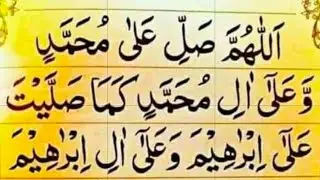 اَللّٰهُمَّ صَلِّ عَلٰی مُحَمَّدٍ
وَّعَلٰٓی اٰلِ مُحَمَّدٍ کَمَا صَلَّیْتَ
عَلٰٓی اِبْرٰهِیْمَ وَعَلٰٓی اٰلِ اِبْرٰهِیْمَ